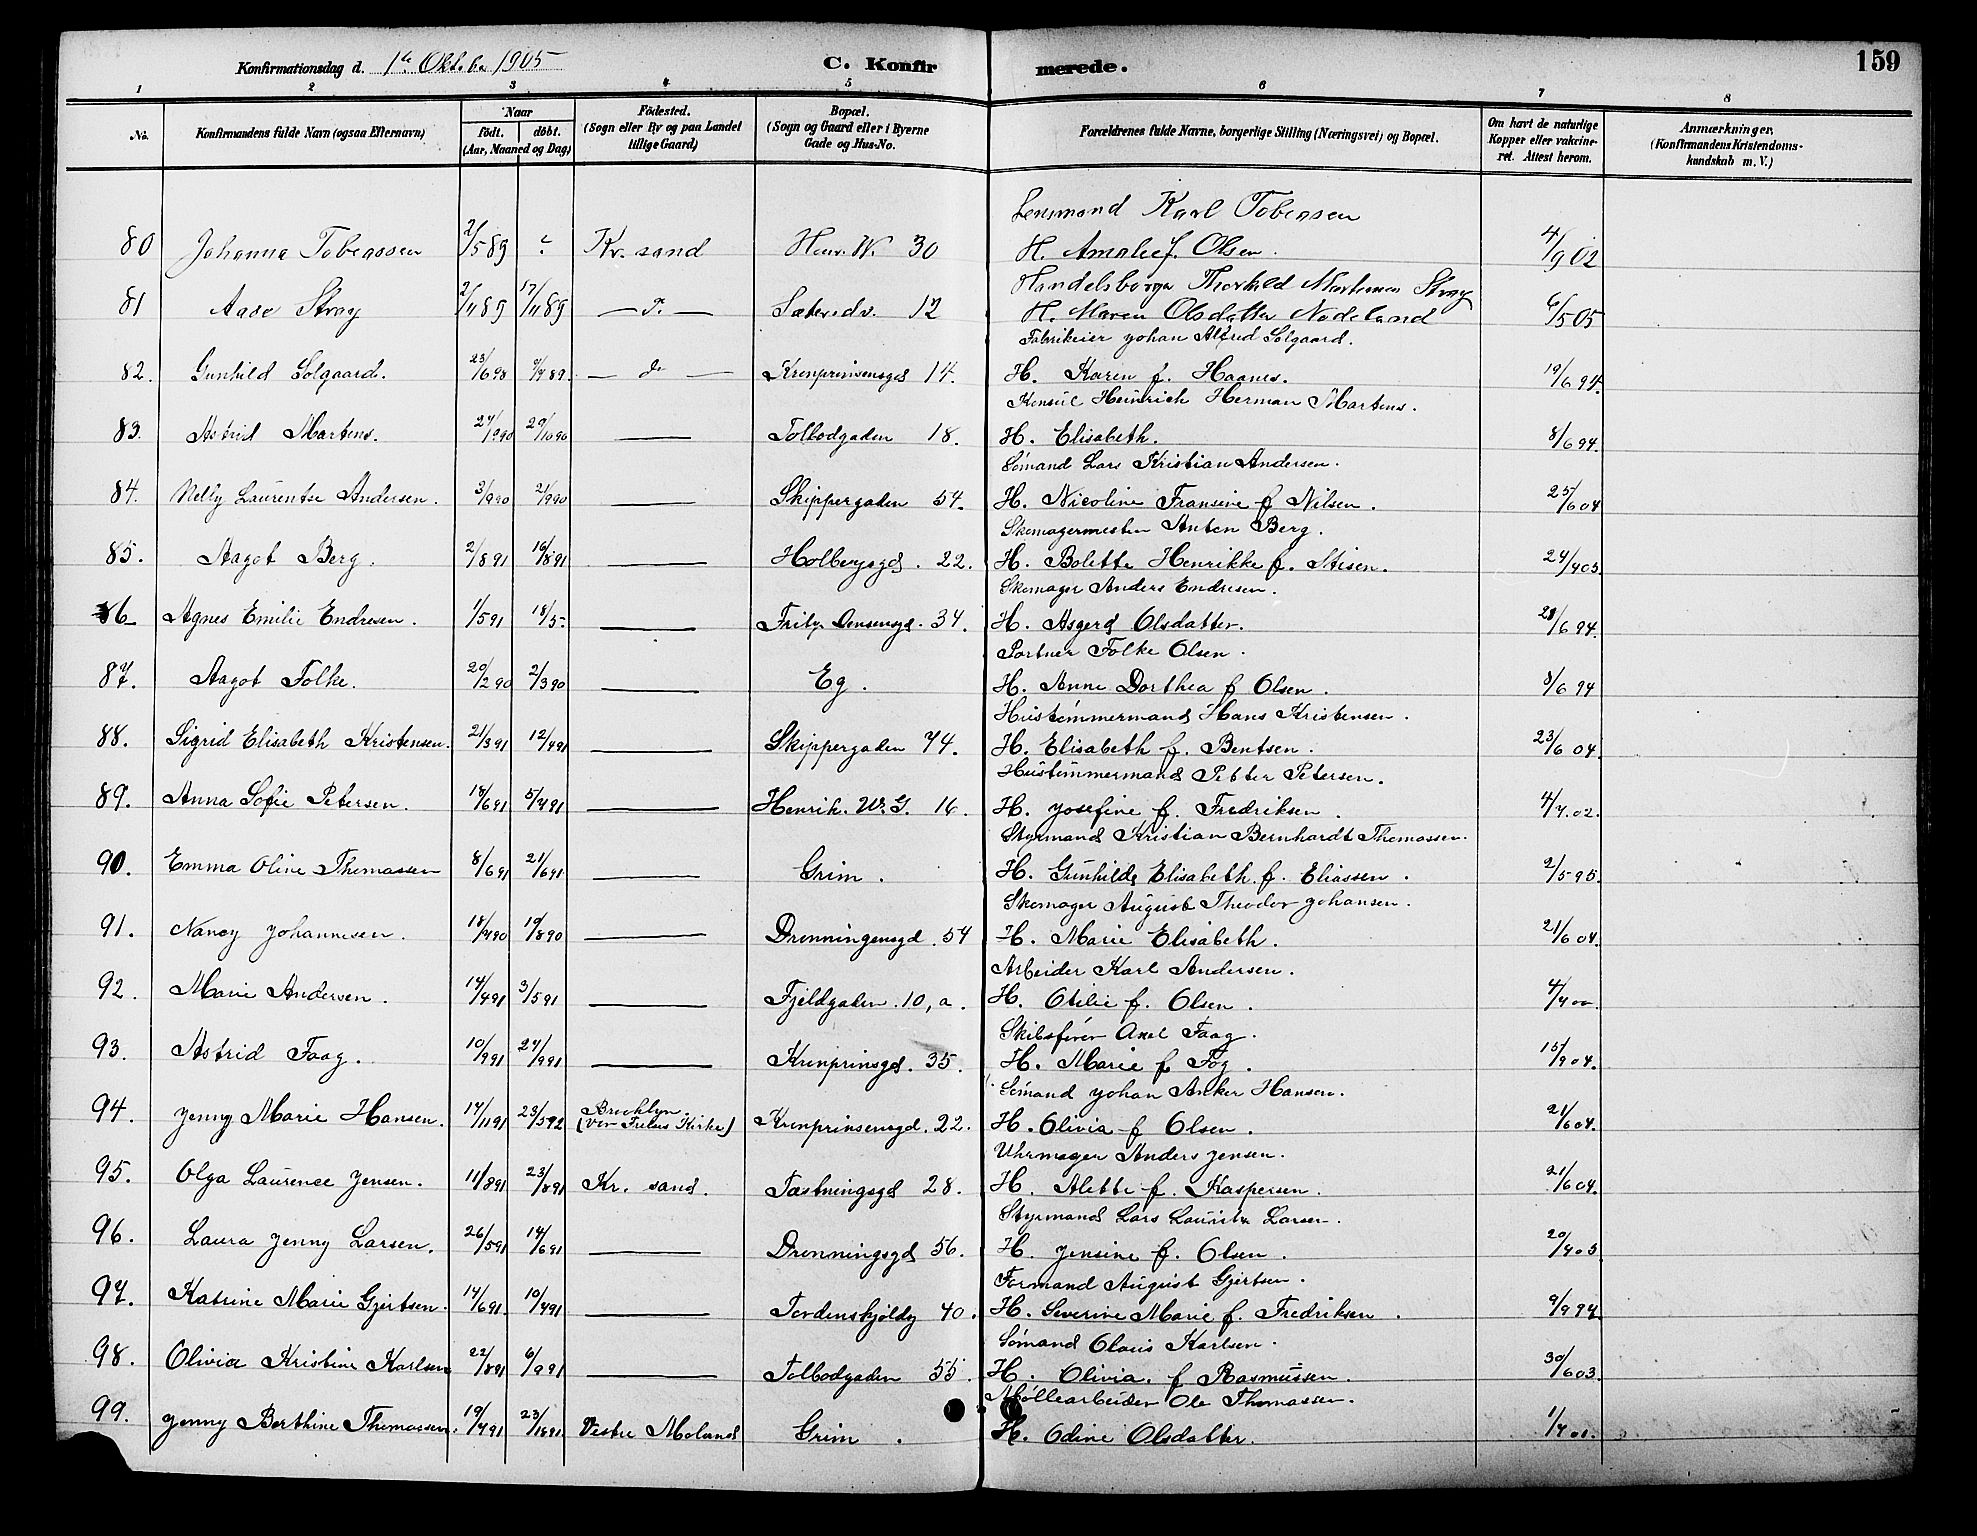 Konfirmationsdag d. 1ste Oktob. 1905
C. Konfirmerede.
159
1 2 3 4 5 6 7 8
No.
Konfirmandens fulde Navn (ogsaa Efternavn)
Naar
født. døbt.
(Aar, Maaned og Dag)
Fødested.
(Sogn eller By og paa Landet
tillige Gaard)
Bopæl.
(Sogn og Gaard eller i Byerne
Gade og Hus-No.
Forældrenes fulde Navne, borgerlige Stilling (Næringsvei) og Bopæl.
Om havt de naturlige
Kopper eller vakcine-
ret. Attest herom.
Anmærkninger,
(Konfirmandens Kristendoms-
kundskab m. V.)
Lensmand Karl Tobiassen
80 Johanna Tobiassen 2/5 89 Kr. sand Henr. W. 30 H. Amalie f. Olsen. 4/9 02
Handelsborger Thorkild Mortensen Stray
81 Aase Stray 2/11 89 17/11 89 — do — Sætersdv. 12 H. Maren Olsdatter Nodeland 6/5 05
Fabrikeier Johan Alfred Solgaard.
82. Gunhild Solgaard. 23/6 98 9/7 89. — do — Kronprinsensgd 14. H. Karen f. Haanes. 19/6 94.
Konsul Heinrich Herman Martens.
83. Astrid Martens. 27/9 90 29/10 90 — Tolbodgaden 18. H. Elisabeth. 8/6 94.
Sømand Lars Kristian Andersen.
84. Nelly Laurentse Andersen. 3/9 90 21/9 90 — Skippergaden 54. H. Nicoline Fransine f Nilsen. 25/6 04
Skomagermester Anton Berg.
85. Aagot Berg. 2/8 91 16/8 91 — Holbergsgd. 22. H. Bolette Henrikke f. Stisen. 24/4 03.
Skomager Anders Endresen.
86 Agnes Emilie Endresen. 1/5 91 18/5 — Fritz Jensensgd. 34. H. Asgerd Olsdatter. 28/6 94.
Portner Folke Olsen.
87. Aagot Folke. 20/2 90 2/3 90 — Eg. H. Anne Dorthea f Olsen. 8/6 94
Hustømmermand Hans Kristensen.
88. Sigrid Elisabeth Kristensen. 21/3 91 12/4 91 — Skippergaden 74. H. Elisabeth f. Bentsen. 23/6 04.
Hustømmermand Petter Petersen.
89. Anna Sofie Petersen. 18/6 91 5/7 91 — Henrik. W. G. 16. H. Josefine f. Fredriksen. 4/7. 02.
Styrmand Kristian Bernhardt Thomassen.
90. Emma Oline Thomassen 8/6 91 21/6 91 — Grim. H. Gunhild Elisabeth f. Eliassen. 2/5 95.
Skomager August Theodor Johansen.
91. Nancy Johannesen. 18/7 90 19/8 90 — Dronningensgd. 54 H. Marie Elisabeth. 21/6 04.
Arbeider Karl Andersen.
92. Marie Andersen. 14/4 91 3/5 91 — Fjeldgaden. 10, a. H. Otilie f. Olsen. 4/7 00.
Skibsfører Axel Faag.
93. Astrid Faag. 10/9 91 27/9 91 — Kronprinsgd. 35. H. Marie f Fog. 15/9 04.
Sømand Johan Anker Hansen.
94. Jenny Marie Hansen. 17/11 91 23/5 92 Brooklyn (vor Frelsers Kirke) Kronprinsensgd. 22. H. Olivia f Olsen. 21/6 04.
Uhrmager Anders Jensen.
95. Olga Laurence Jensen. 11/8 91 23/8 91 Kr. sand. Fæstningsgd 28. H. Alette f. Kaspersen. 21/6 04.
Styrmand Lars Lauritz Larsen.
96. Laura Jenny Larsen. 26/5 91 14/6 91 — Dronningsgd 56. H. Jensine f. Olsen. 20/4 03
Formand August Gjertsen.
97. Katrine Marie Gjertsen. 14/6 91. 10/7 91 — Tordenskjoldg 40. H. Severine Marie f. Fredriksen. 9/9 94
Sømand Olaus Karlsen.
98. Olivia Kristine Karlsen 22/8 91 6/9 91 — Tolbodgaden 55. H. Olivia f Rasmussen. 30/6 03.
Møllearbeider Ole Thomassen.
99. Jenny Berthine Thomassen. 19/7 91 Vestre Moland Grim. H. Odine Olsdatter. 1/7 01.